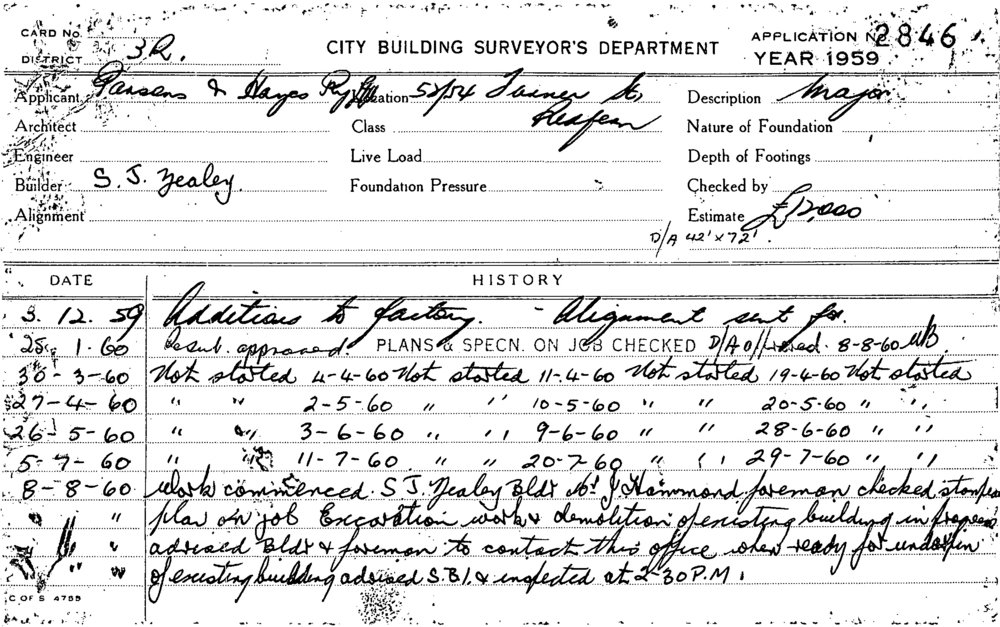 CARD No.
DISTRICT 3R.
CITY BUILDING SURVEYOR'S DEPARTMENT
APPLICATION No 2846
YEAR 1959
Applicant Parsens & Hayes Pty Ltd Location 52/54 Turner St, Redfern Description Major
Architect Class Nature of Foundation
Engineer Live Load Depth of Footings
Builder S. J. Nealey. Foundation Pressure Checked by
Alignment Estimate £12,000
D/A 42' x 72'.
DATE HISTORY
3. 12. 59 Additions to factory. - Alignment sent for.
25. 1. 60 Resub. approved. PLANS & SPECN. ON JOB CHECKED D/A 8-8-60
30-3-60 Not started 4-4-60 Not started 11-4-60 Not started 19-4-60 Not started
27-4-60 " " 2-5-60 " " 10-5-60 " " 20-5-60 " "
26-5-60 " " 3-6-60 " " 9-6-60 " " 28-6-60 " "
5-7-60 " " 11-7-60 " " 20-7-60 " " 29-7-60 " "
8-8-60 Work commenced. S J Nealey Bldr Mr J Hammond foreman checked
" " plan on job Excavation work & demolition of existing building in
" " advised Bldr & foreman to contact this office when ready for underpin
" " of existing building advised S.B.I. & inspected at 2-30 P.M.
C OF S 4755